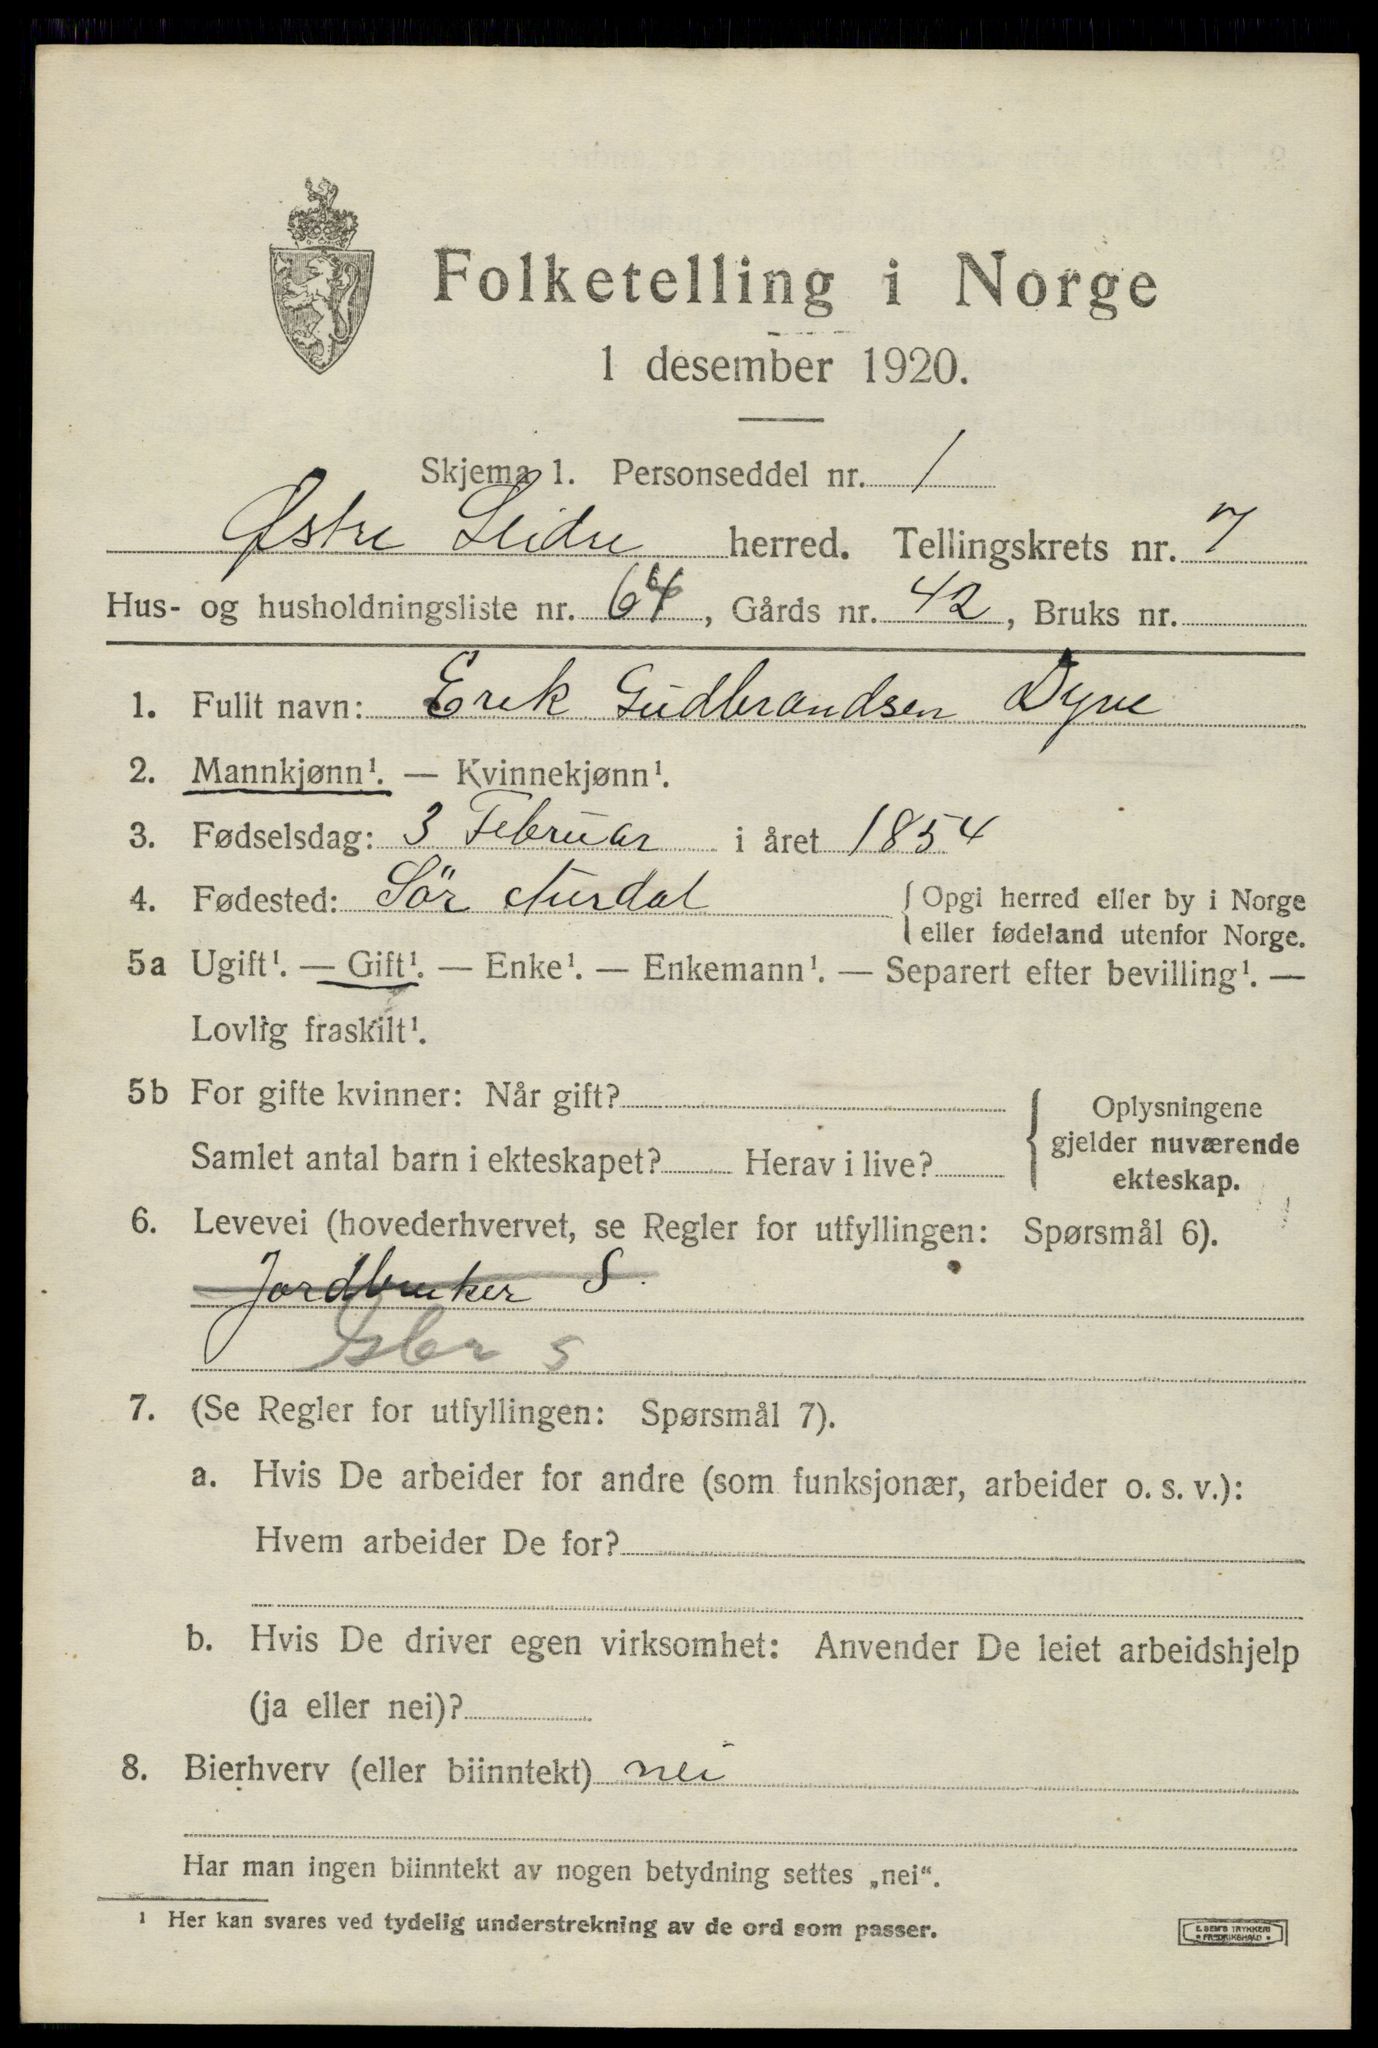 Folketelling i Norge
1 desember 1920.
Skjema 1. Personseddel nr. 1
Østre Slidre herred. Tellingskrets nr. 7
Hus- og husholdningsliste nr. 64, Gårds nr. 42, Bruks nr.
1. Fullt navn: Erik Gudbrandsen Dyve
2. Mannkjønn¹. — Kvinnekjønn¹.
3. Fødselsdag: 3 Februar i året 1854
4. Fødested: Sör Aurdal { Opgi herred eller by i Norge
eller fødeland utenfor Norge.
5a Ugift¹. — Gift¹. — Enke¹. — Enkemann¹. — Separert efter bevilling¹. —
Lovlig fraskilt¹.
5b For gifte kvinner: Når gift?
Samlet antal barn i ekteskapet? Herav i live?
{ Oplysningene
gjelder nuværende
ekteskap.
6. Levevei (hovederhvervet, se Regler for utfyllingen: Spørsmål 6).
Jordbruker S
Gbr s
7. (Se Regler for utfyllingen: Spørsmål 7).
a. Hvis De arbeider for andre (som funksjonær, arbeider o. s. v.):
Hvem arbeider De for?
b. Hvis De driver egen virksomhet: Anvender De leiet arbeidshjelp
(ja eller nei)?
8. Bierhverv (eller biinntekt) nei
Har man ingen biinntekt av nogen betydning settes „nei“.
¹ Her kan svares ved tydelig understrekning av de ord som passer.
E. SEM'S TRYKKERI
* FREDRIKSHALD *